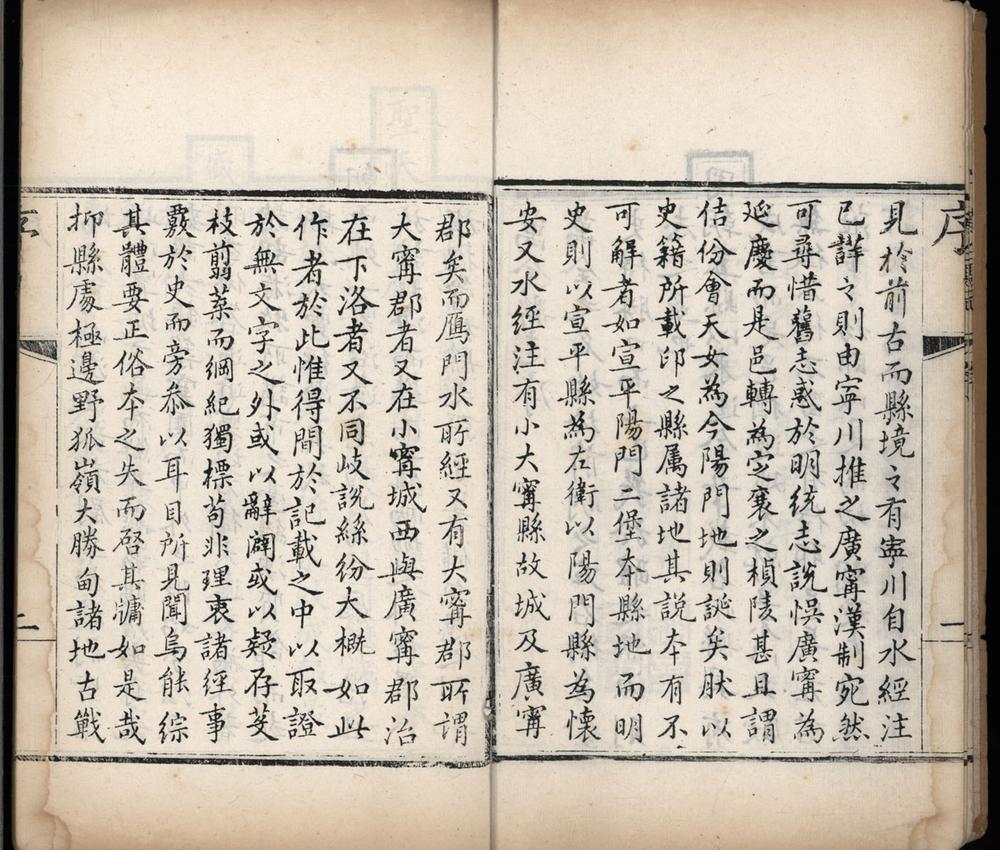 見於前古而縣境之有寧川自水經注
已詳之則由寧川推之廣寧漢制宛然
可尋惜舊志惑於明統志說悞廣寧為
延慶而是邑轉為定襄之楨陵甚且謂
佶份會天女為今陽門地則誕矣肰以
史籍所載卬之縣属諸地其説夲有不
可解者如宣平陽門二堡夲縣地而明
史則以宣平縣為左衛以陽門縣為懷
安又水經注有小大寗縣故城及廣寗
郡矣而鴈門水所經又有大寗郡所謂
大寗郡者又在小寗城西與廣寗郡治
在下洛者又不同岐説絲紛大槪如此
作者於此惟得間於記載之中以取證
於無文字之外或以辭闢或以疑存芟
枝翦葉而綱紀獨標苟非理衷諸經事
覈於史而旁叅以耳目所見聞烏能綜
其體要正俗夲之失而啓其牗如是哉
抑縣處極邊野狐嶺大勝甸諸地古戰
序
一
二